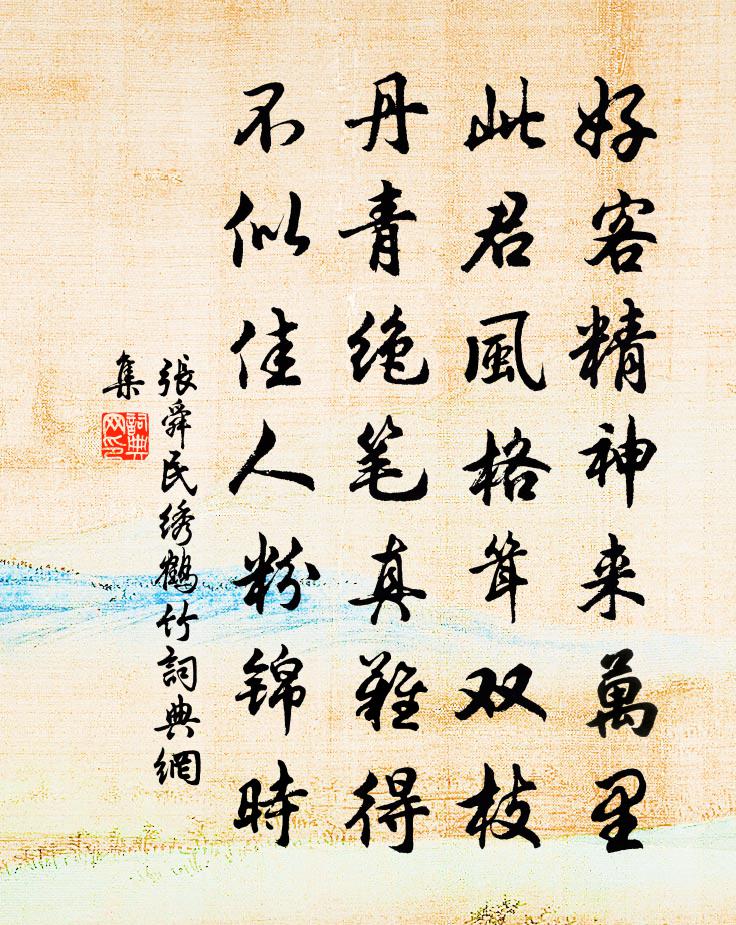 好客精神来萬里
此君風格耸双枝
丹青绝笔真難得
不似佳人粉锦時
張舜民绣鶴竹詞典網
集
詞典
网印